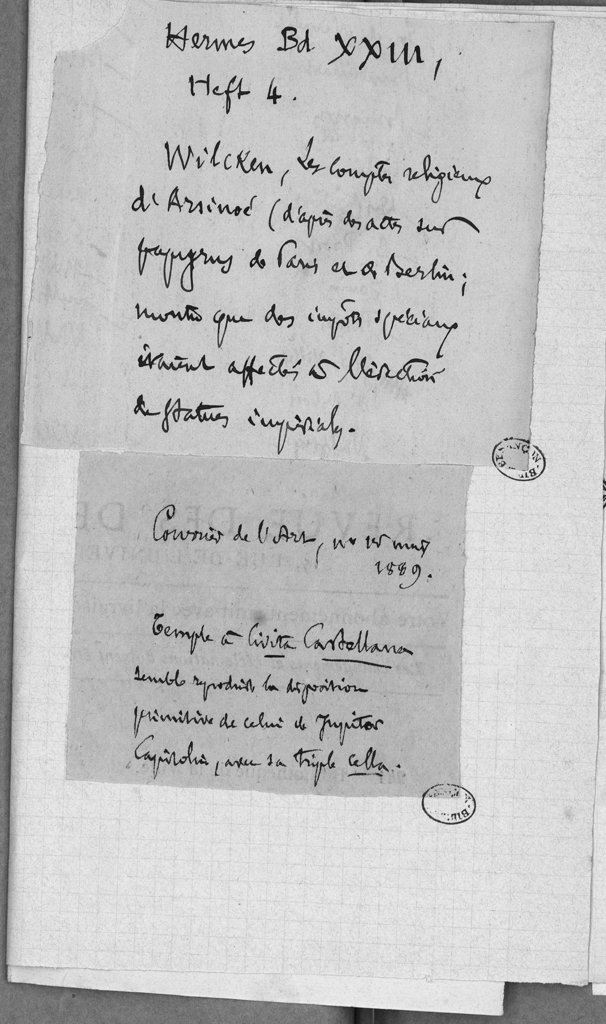 Hermes Bd XXIII,
Heft 4.
Wilcken, Les comptes religieux
d'Arsinoé (d'après des actes sur
papyrus de Paris et de Berlin;
montre que des impôts spéciaux
étaient affectés à l'érection
de statues impériales.
Courrier de l'Art, no 15 mars
1889.
Temple à Civita Castellana
semble reproduire la disposition
primitive de celui de Jupiter
Capitolin, avec sa triple cella.